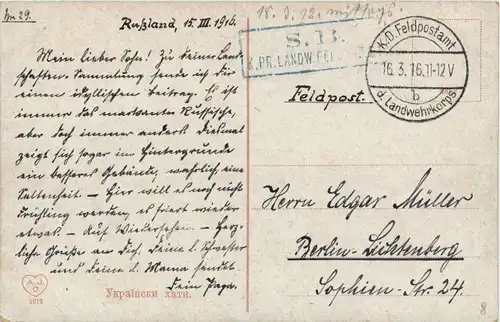 No 29.
Rußland, 15. III. 1916.
Mein lieber Sohn! Zu deiner Land-
schaften-Sammlung sende ich dir
einen idyllischen Beitrag. Es ist
immer das markante Russische,
aber doch immer anders. Diesmal
zeigt sich sogar im Hintergrunde
ein besseres Gebäude, wahrlich eine
Seltenheit. – Hier will es noch nicht
Frühling werden, es friert wieder
etwas. – Auf Wiedersehen. – Herz-
liche Grüße an Dich, deine Schwester
und deine l. Mama sendet
Dein Papa.
A.J.
O.
1915
Українски хати.
S. B.
K. PR. LANDW.
Feldpost.
K.D. Feldpostamt
16.3.16.11-12V
b
d. Landwehrkorps
Herrn Edgar Müller
Berlin-Lichtenberg
Sophien-Str. 24.
8